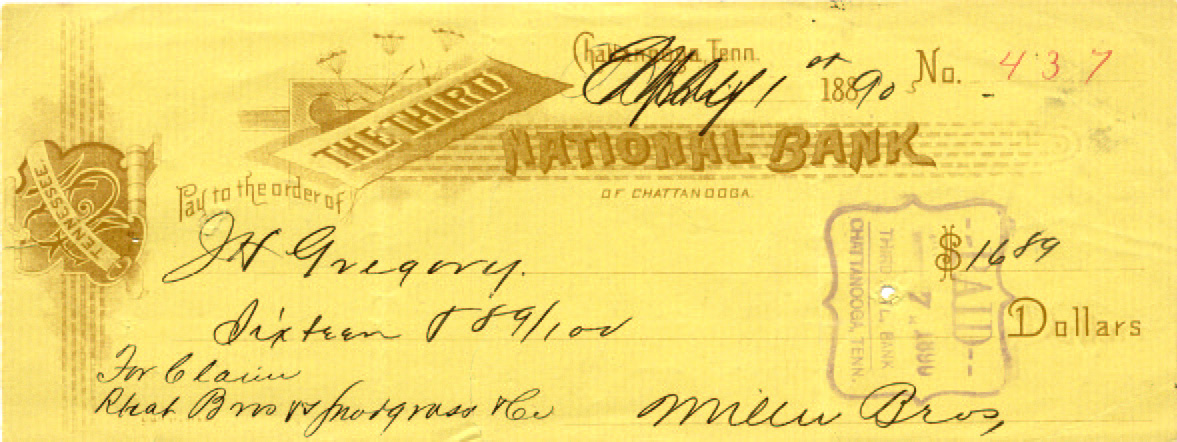 Chattanooga, Tenn.
May 1st 1890 No. 437
THE THIRD
NATIONAL BANK
OF CHATTANOOGA.
TENNESSEE
Pay to the order of
J H Gregory. $ 16 89
Sixteen & 89/100 Dollars
For Claim
Bros vs Snodgrass & Co
Miller Bros,
PAID
MAY 7
THIRD NAT'L BANK
CHATTANOOGA, TENN.